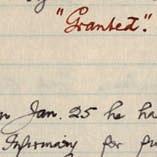 "Granted".
on Jan. 25 he ha
Infirmary for